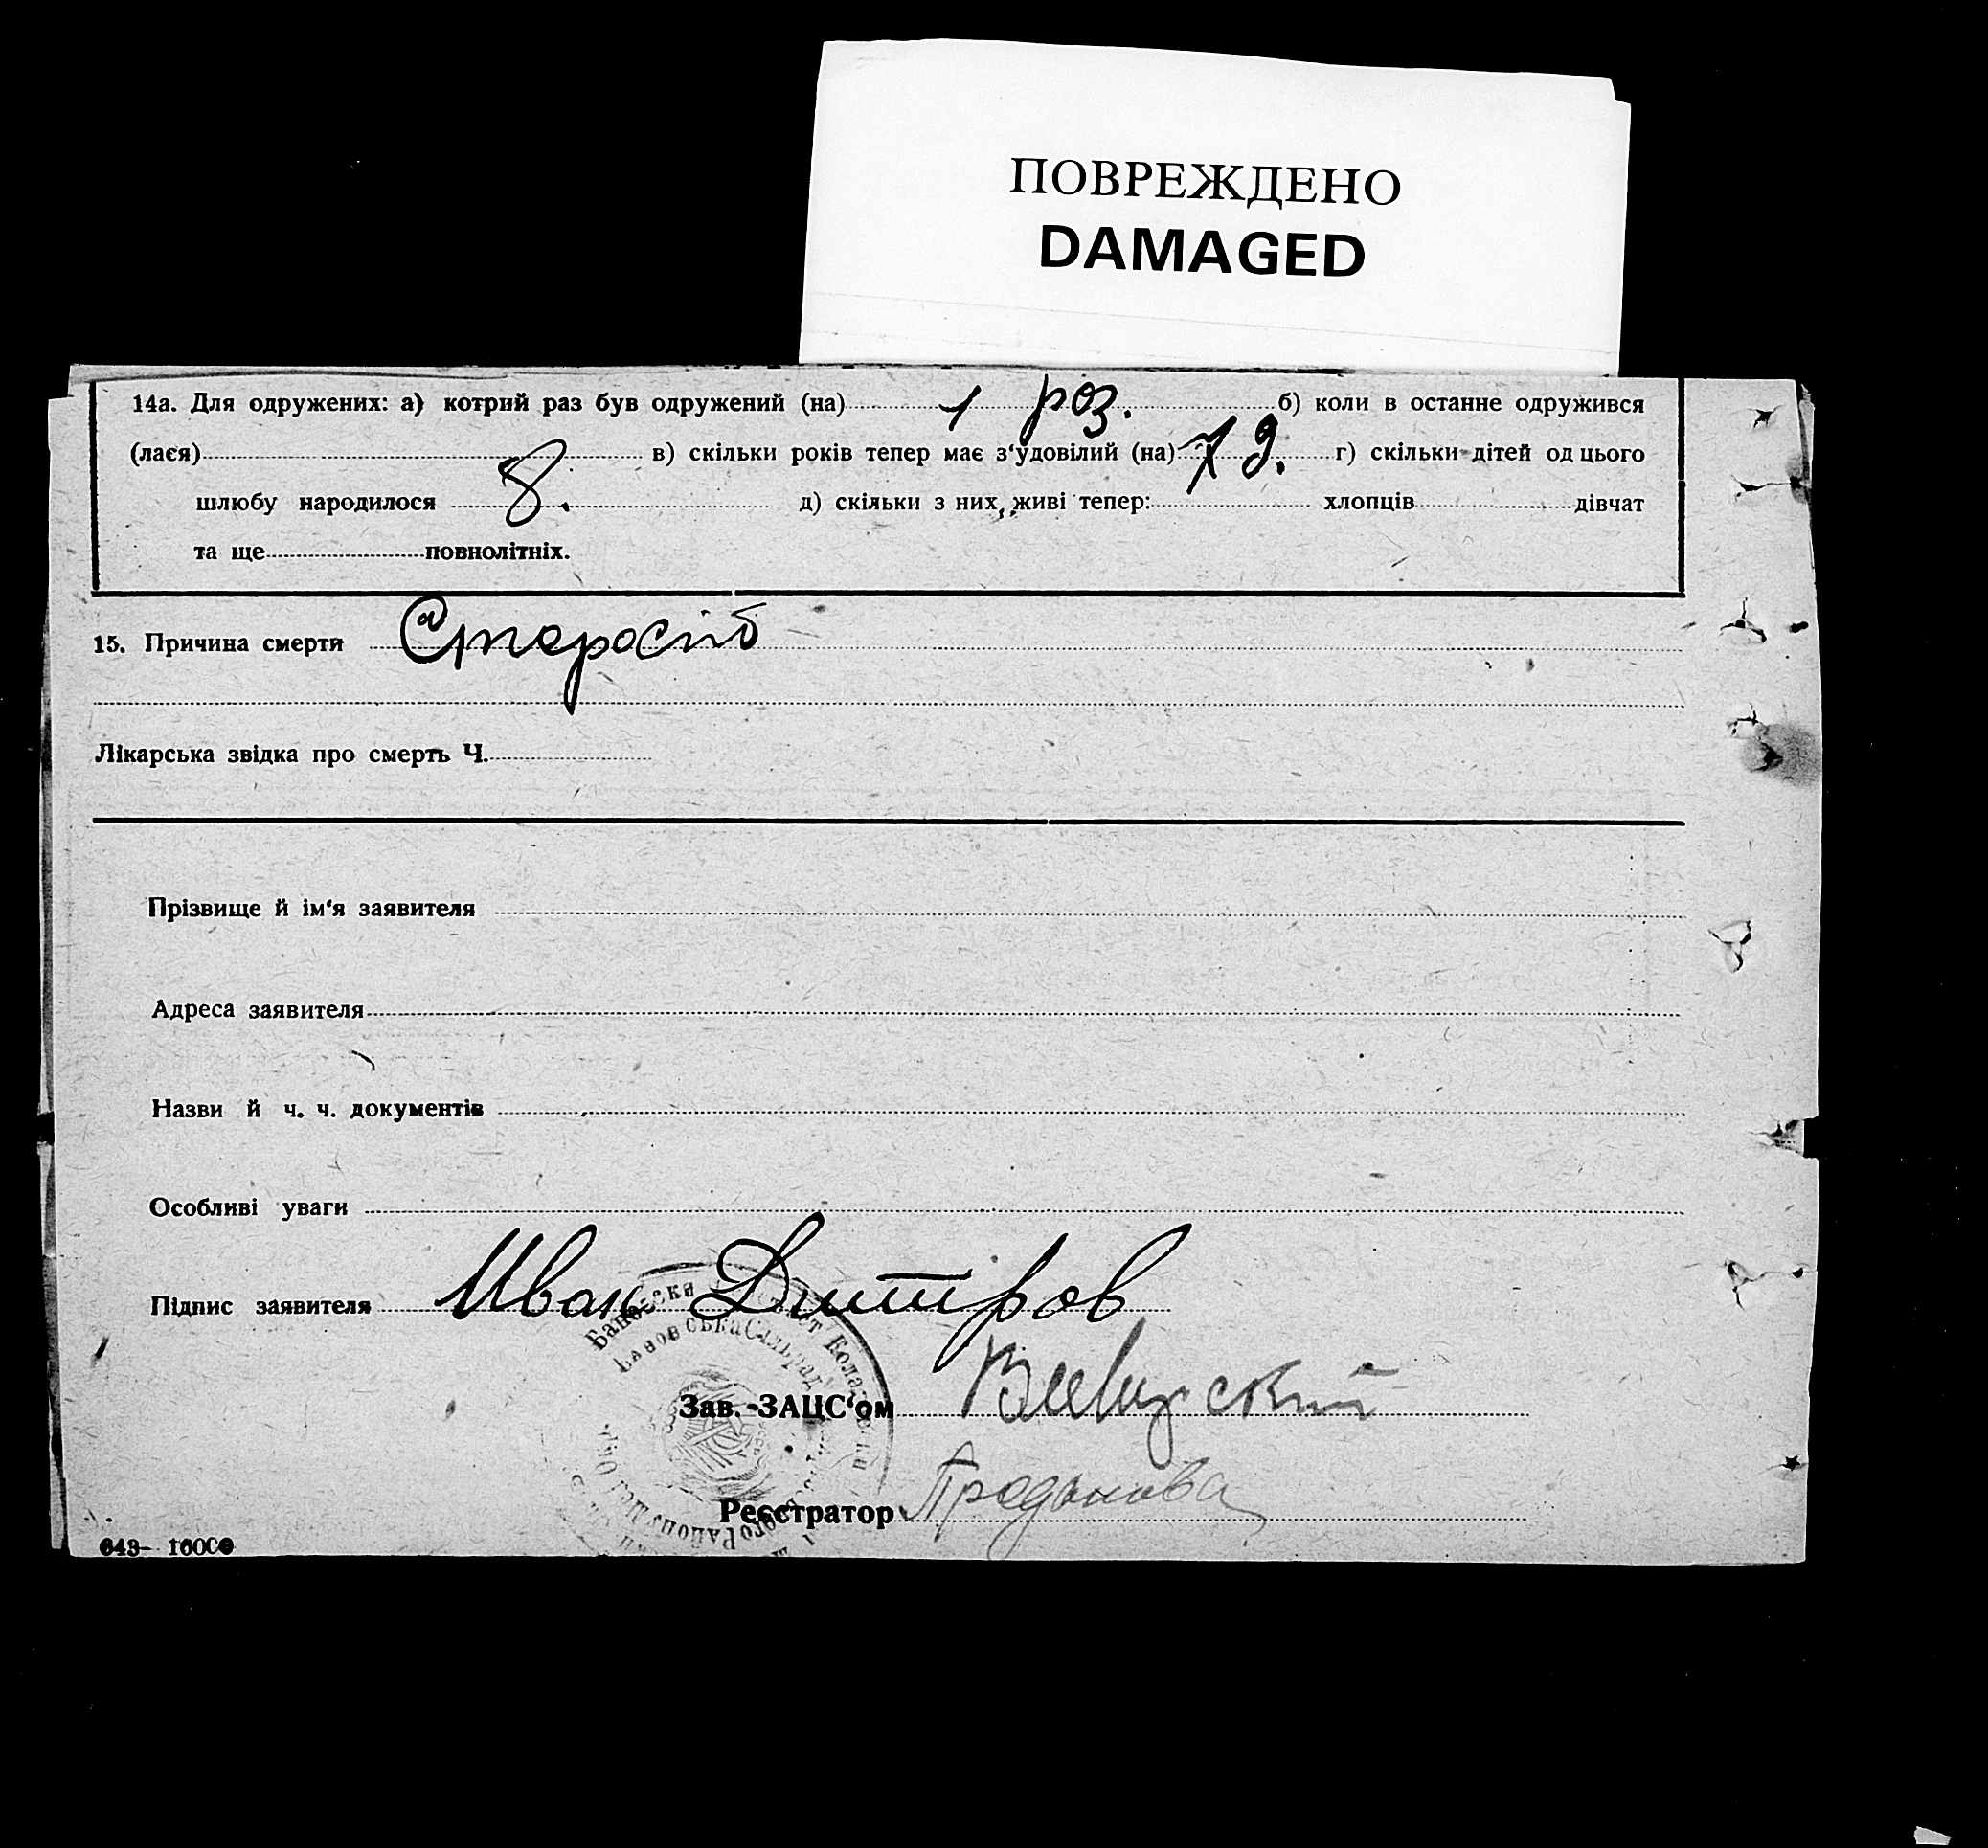 ПОВРЕЖДЕНО
DAMAGED
14а. Для одружених: а) котрий раз був одружений (на) 1 роз. б) коли в останне одружився
(лася) в) скільки років тепер має з'удовілий (на) 79. г) скільки дітей од цього
шлюбу народилося 8. д) скільки з них, живі тепер: хлопців дівчат
та ще повнолітніх.
15. Причина смерти Старость
Лікарська звідка про смерть Ч.
Прізвище й ім'я заявителя
Адреса заявителя
Назви й ч. ч. документів
Особливі уваги
Підпис заявителя Иван Дмитров
Зав. ЗАЦС'ом
Реєстратор Проданова
643- 16000